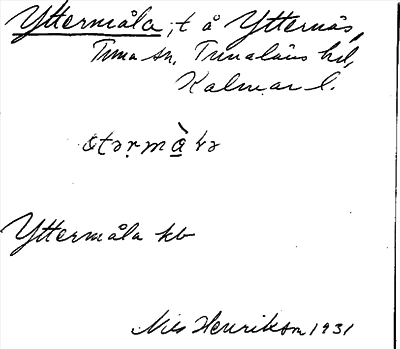 Yttermåla, t å Ytternäs,
Tuna sn, Tunaläns hd,
Kalmar l.
Yttermåla kb
Nils Henrikson 1931